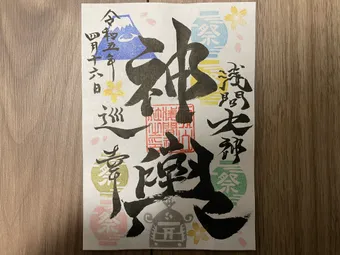 淺間七郷
神輿
巡幸
令和五年
四月十六日
祭
祭
祭
祭